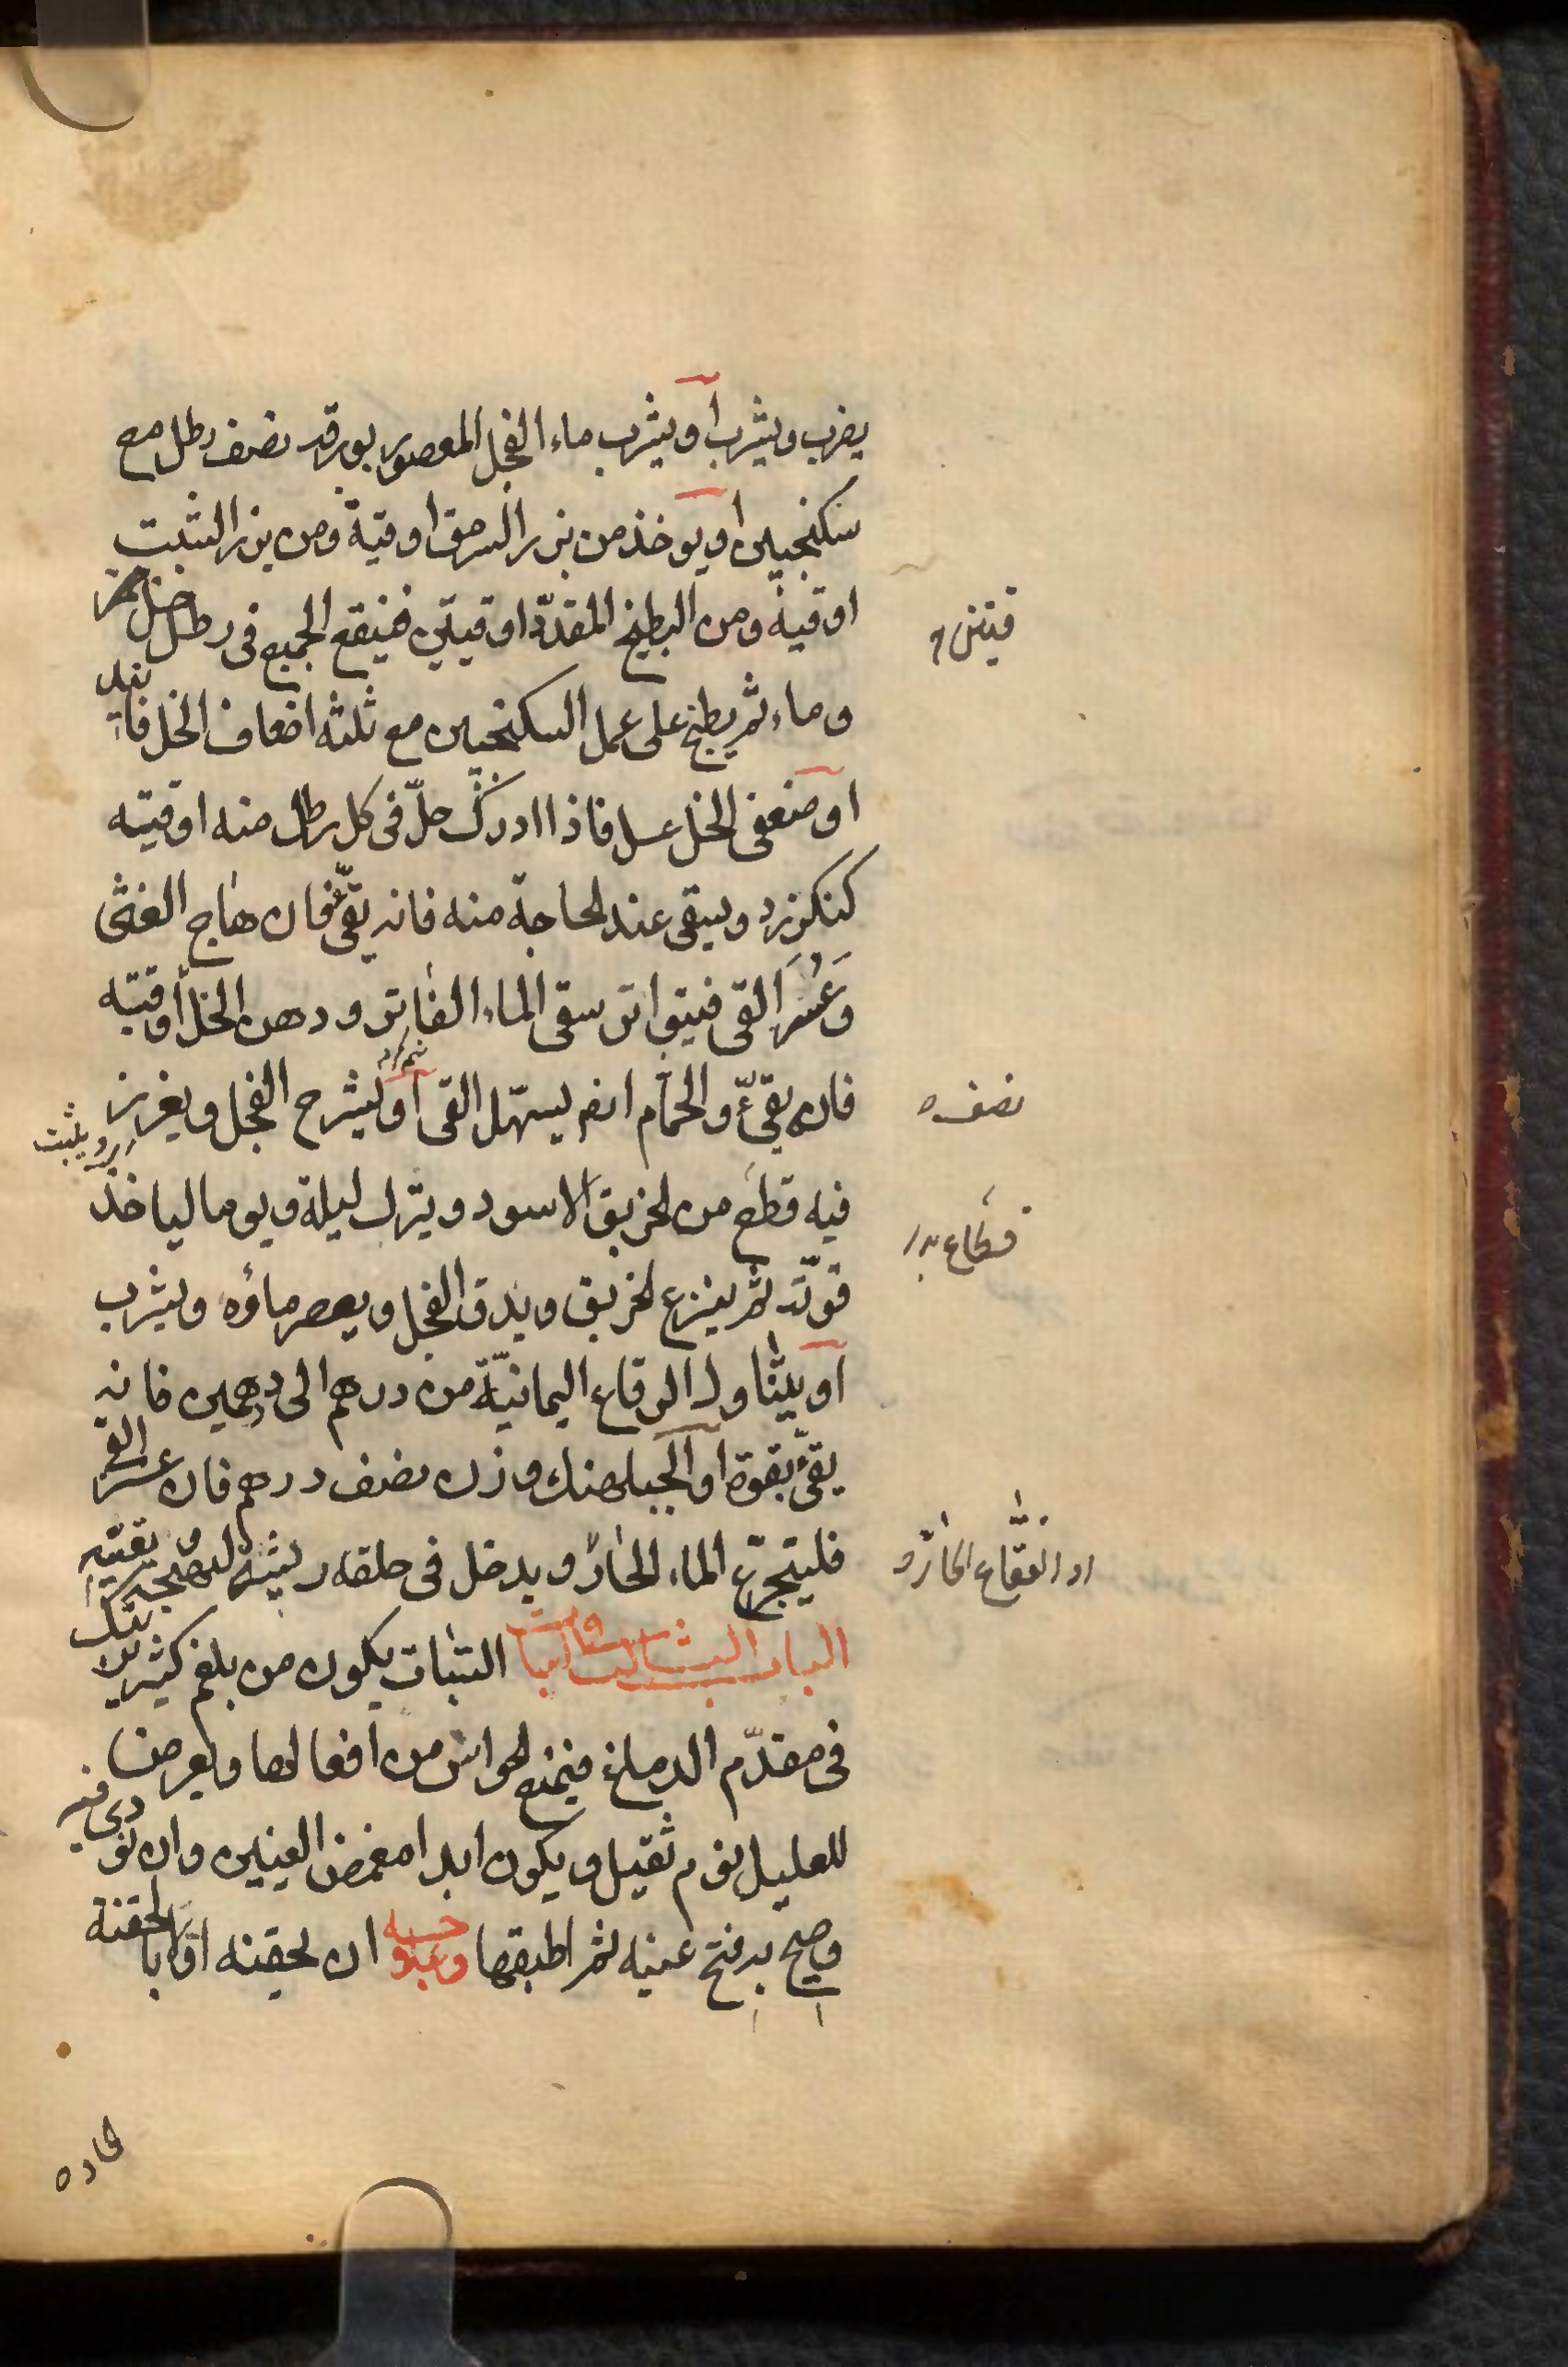 يضرب ويشرب أو يشرب ماء الفجل المعصور بورقه نصف رطل مع
سكنجبين او يوخذ من بزر السرمق اوقية ومن بزر الشبت
اوقية ومن البطيخ المقدّد اوقيتين فينقع الجميع فى رطل خل خمر
وماء ثم يطبخ على عمل السكنجبين مع ثلثة اضعاف الخل فانيد
او ضعفى الخل عسل فاذا ادرك حلّ فى كل رطل منه اوقيه
كنكرزد ويسقى عند الحاجة منه فانه يقىّ فان هاج الغثى
وعَسُرَ القى فيتواتر سقى الماء الفاتر ودهن الخل أوقيه
فانه يقىّء والحمّام ايضا يسهّل القى أو ليشرح الفجل ويغرز
فيه قطع من الخربق الاسود ويترك ليلة ويوما لياخذ
قوّته ثم ينزع الخربق ويدق الفجل ويعصر ماؤه ويشرب
أو يتناول الرقاع اليمانيّة من درهم الى درهمين فانه
يقىّء بقوة او الجبلهنك وزن نصف درهم فان عسر القى
فليتجرّع الماء الحارّ ويدخل فى حلقه ريشة ليهيجه ويقيّيه
الباب الثالث السبات السّبات يكون من بلغم كثير
فى مقدّم الدماغ فيمنع الحواس من افعالها ويعرض
للعليل نوم ثقيل ويكون ابدا مغمض العينين وان نودى
وصيح به فتح عينيه ثم اطبقها وعلاجه ان تحقنه اوّلا بالحقنة
الحاده
نصف
قطاع
او الفقاع الحار